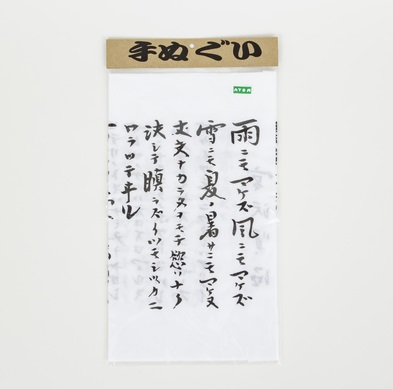 手ぬぐい
雨ニモマケズ風ニモマケズ
雪ニモ夏ノ暑サニモマケヌ
丈夫ナカラダヲモチ慾ハナク
決シテ瞋ラズイツモシヅカニ
ワラッテヰル